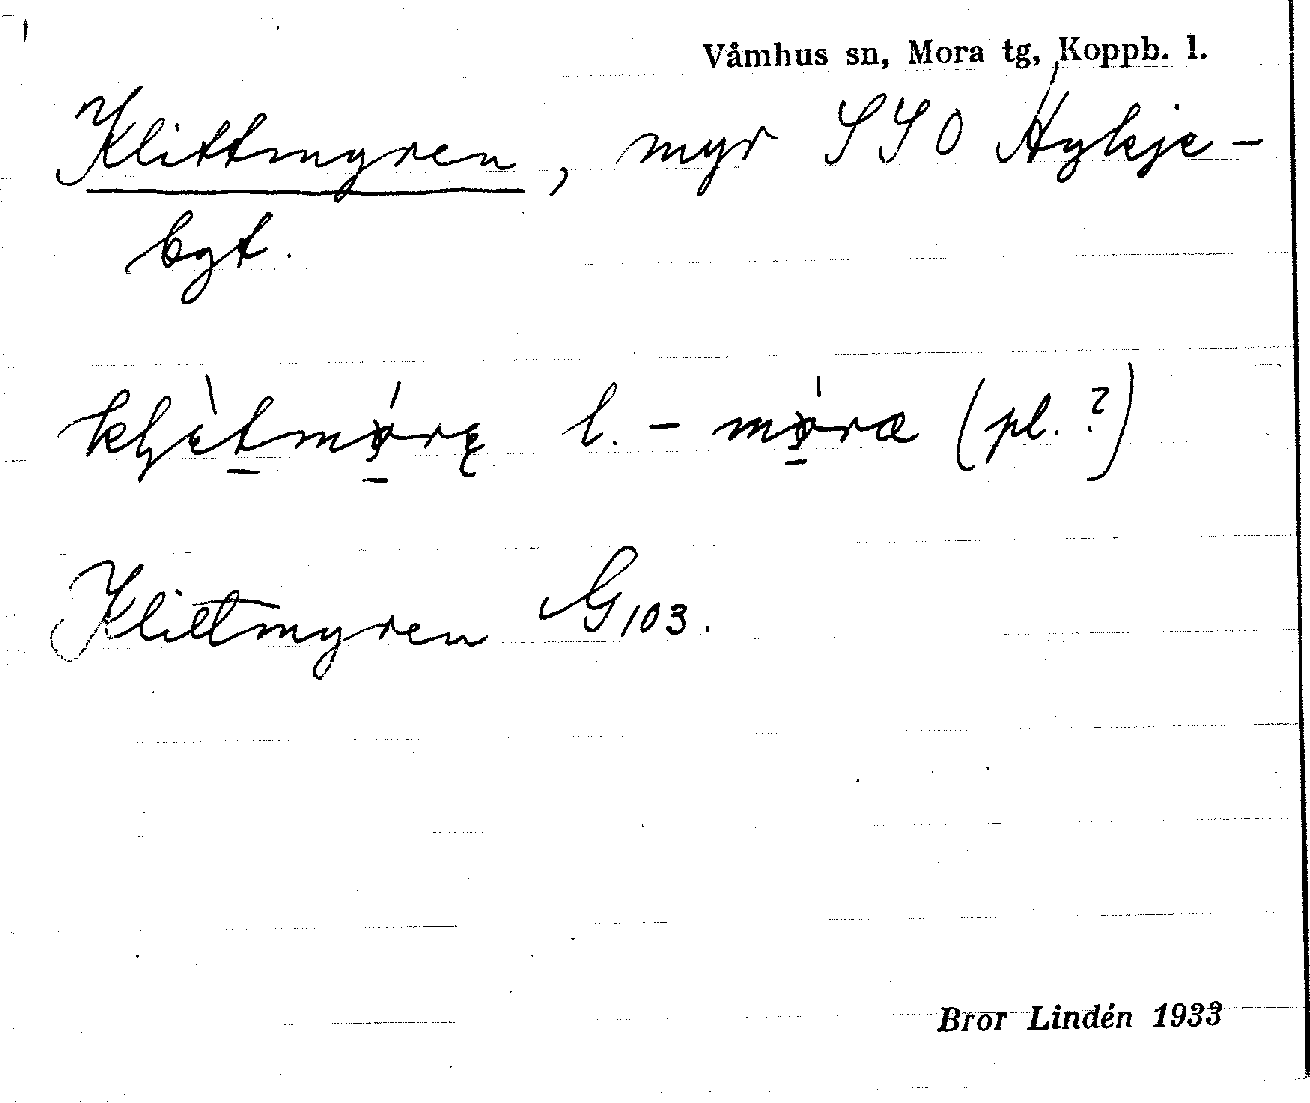 Våmhus sn, Mora tg, Koppb. l.
Klittmyren, myr SSO Hykje-
byt.
l. - (pl.?)
Klittmyren G103.
Bror Lindén 1933